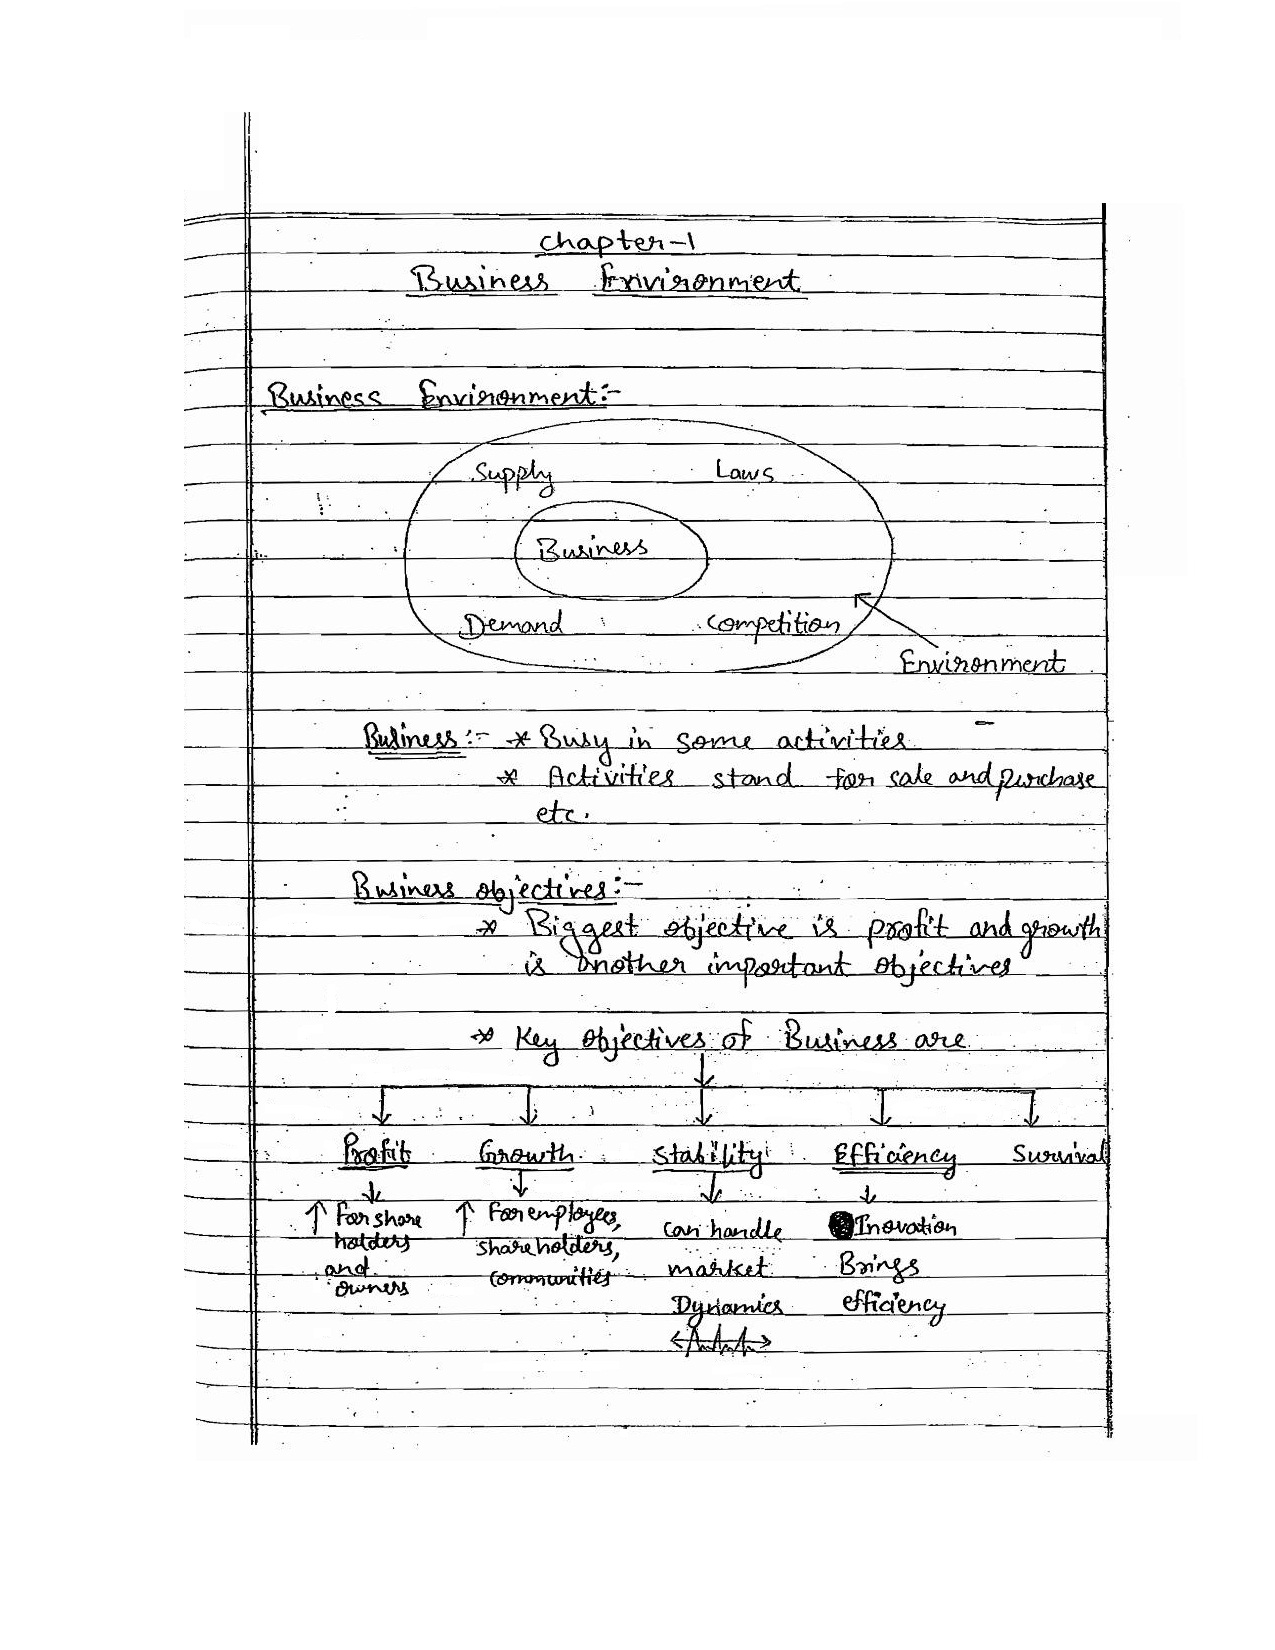 Chapter-1
Business Environment
Business Environment:-
Supply Laws
Business
Demand Competition
Environment
Business:- * Busy in some activities
* Activities stand for sale and purchase
etc.
Business objectives:-
* Biggest objective is profit and growth
is another important objectives
* Key objectives of Business are
Profit Growth Stability Efficiency Survival
↑ For share ↑ For employees, can handle Inovation
holders shareholders, market Brings
and communities Dynamics efficiency
owners